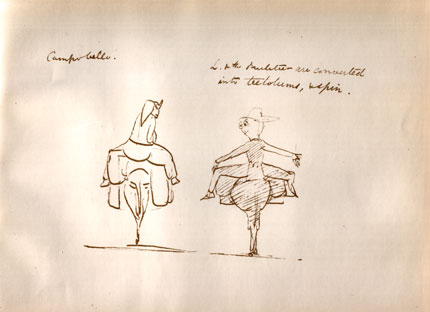 Campobello.
L. & the Muleteer are converted
into teetotums, & spin.